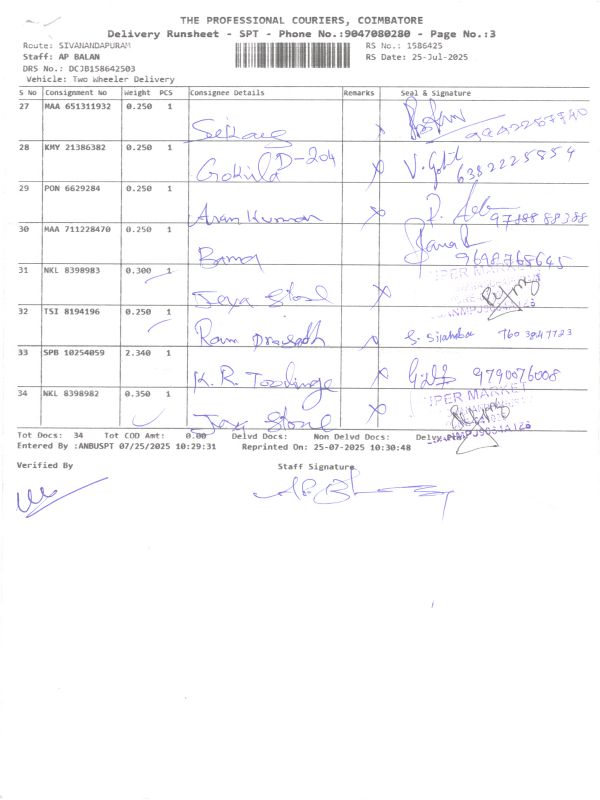 THE PROFESSIONAL COURIERS, COIMBATORE
Delivery Runsheet - SPT - Phone No.:9047080280 - Page No.:3
Route: SIVANANDAPURAM RS No.: 1586425
Staff: AP BALAN RS Date: 25-Jul-2025
DRS No.: DCJB158642503
Vehicle: Two Wheeler Delivery
S No Consignment No Weight PCS Consignee Details Remarks Seal & Signature
27 MAA 651311932 0.250 1
28 KMY 21386382 0.250 1
Gokila D-204 V. 6382225854
29 PON 6629284 0.250 1
Arun Kumar
30 MAA 711228470 0.250 1
Bama 9698765645
31 NKL 8398983 0.300 1
Jaya Store
32 TSI 8194196 0.250 1
Ram Prasadh S. 760 3847723
33 SPB 10254059 2.340 1
K. R. 9790076008
34 NKL 8398982 0.350 1
Jaya Store
Tot Docs: 34 Tot COD Amt: 0.00 Delvd Docs: Non Delvd Docs:
Entered By :ANBUSPT 07/25/2025 10:29:31 Reprinted On: 25-07-2025 10:30:48
Verified By Staff Signature